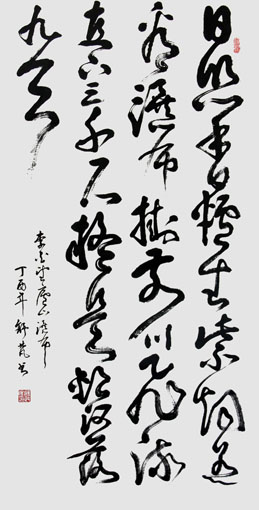 日照香爐生紫烟遥
看瀑布掛前川飛流
直下三千尺疑是銀河落
九天
李白望廬山瀑布
丁酉年